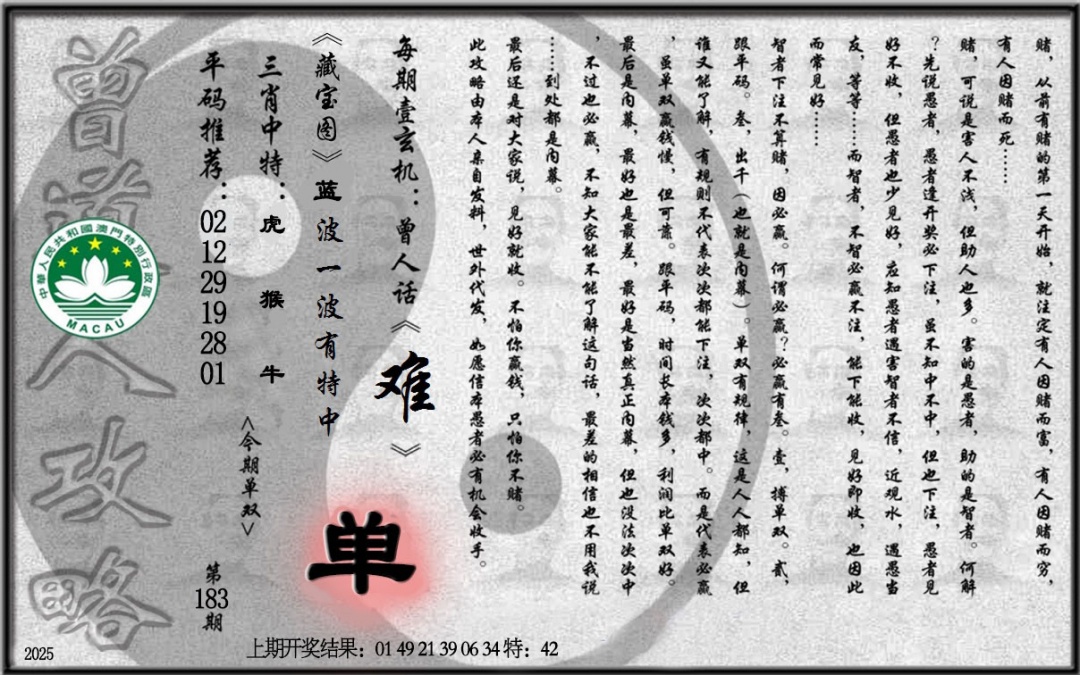 赌，从前有赌的第一天开始，就注定有人因赌而富，有人因赌而穷，
有人因赌而死……
赌，可说是害人不浅，但助人也多。害的是愚者，助的是智者。何解
？先说愚者，愚者逢开奖必下注，虽不知中不中，但也下注，愚者见
好不收，但愚者也少见好，应知愚者遇害智者不信，近观水，遇愚当
友，等等……而智者，不智必赢不注，能下能收，见好即收，也因此
而常见好……
智者下注不算赌，因必赢。何谓必赢？必赢有叁。壹，搏单双。贰，
跟平码。叁，出千（也就是内幕）。单双有规律，这是人人都知，但
谁又能了解，有规则不代表次次都能下注，次次都中。而是代表必赢
，虽单双赢钱慢，但可靠。跟平码，时间长本钱多，利润比单双好。
最后是内幕，最好也是最差，最好是当然真正内幕，但也没法次次中
，不过也必赢，不知大家能不能了解这句话，最差的相信也不用我说
……到处都是内幕。
最后还是对大家说，见好就收。不怕你赢钱，只怕你不赌。
此攻略由本人亲自发料，世外代发，如愿信本愚者必有机会收手。
每期壹玄机：曾人话《难》
《藏宝图》蓝波一波有特中
单
三肖中特：虎 猴 牛
<今期单双>
平码推荐：02 12 29 19 28 01
第183期
曾道人攻略
中華人民共和國澳門特別行政區
MACAU
2025
上期开奖结果：01 49 21 39 06 34 特：42